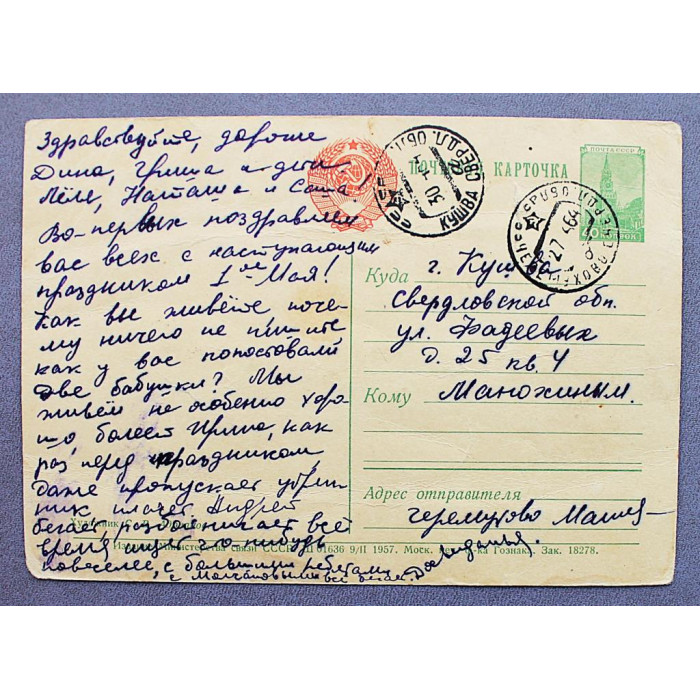 Здравствуйте, дорогие
Дина, Гриша и дети
Лёля, Наташа и Саша!
Во-первых поздравляем
вас всех с наступающим
праздником 1ое Мая!
Как вы живёте поче-
му ничего не пишите
как у вас
две бабушки? Мы
живём не особенно хоро-
шо болеет Ирина, как
раз перед праздником
даже пропускает утрен
ник плачет. Андрей
бегает, всё
время ищет что-нибудь
повеселее, с большими ребятами
с всё До свиданья.
ПОЧТОВАЯ КАРТОЧКА
ПОЧТА СССР
40 КОПЕЕК
КУШВА СВЕРДЛ. ОБЛ.
Куда г. Кушва
Свердловской обл.
ул. Фадеевых
д. 25 кв. 4
Кому Манохиным.
Адрес отправителя
Черемухово
Художник
Издание Министерства связи СССР. Ш 01636 9/II 1957. Моск. Гознака. Зак. 18278.